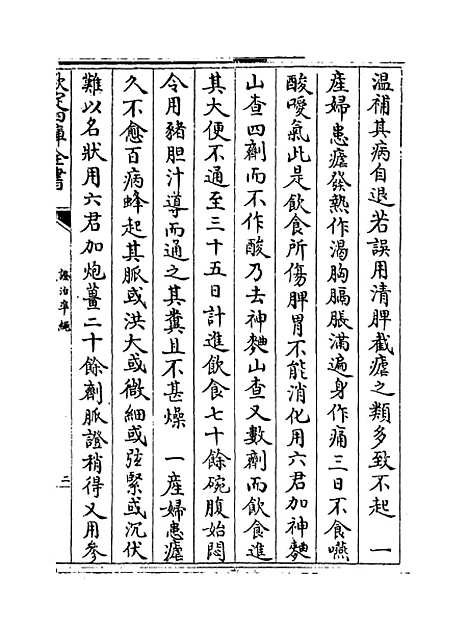 温補其病自退若誤用清脾截瘧之類多致不起　一
産婦患瘧發熱作渴胸膈脹滿遍身作痛三日不食嚥
酸噯氣此是飲食所傷脾胃不能消化用六君加神麯
山查四劑而不作酸乃去神麯山查又數劑而飲食進
其大便不通至三十五日計進飲食七十餘碗腹始悶
令用豬胆汁導而通之其糞且不甚燥　一産婦患瘧
久不愈百病蜂起其脈或洪大或微細或弦緊或沉伏
難以名狀用六君加炮薑二十餘劑脈證稍得又用參
欽定四庫全書
證治準繩
二